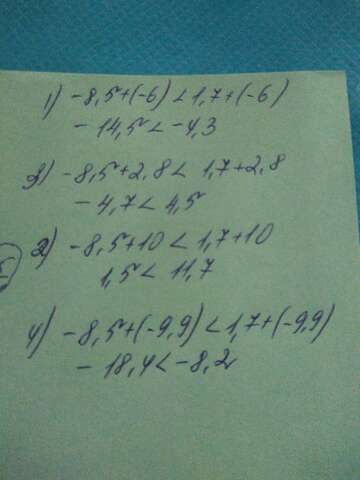 1) -8,5+(-6) < 1,7+(-6)
-14,5 < -4,3
3) -8,5+2,8 < 1,7+2,8
-4,7 < 4,5
2) -8,5+10 < 1,7+10
1,5 < 11,7
4) -8,5+(-9,9) < 1,7+(-9,9)
-18,4 < -8,2